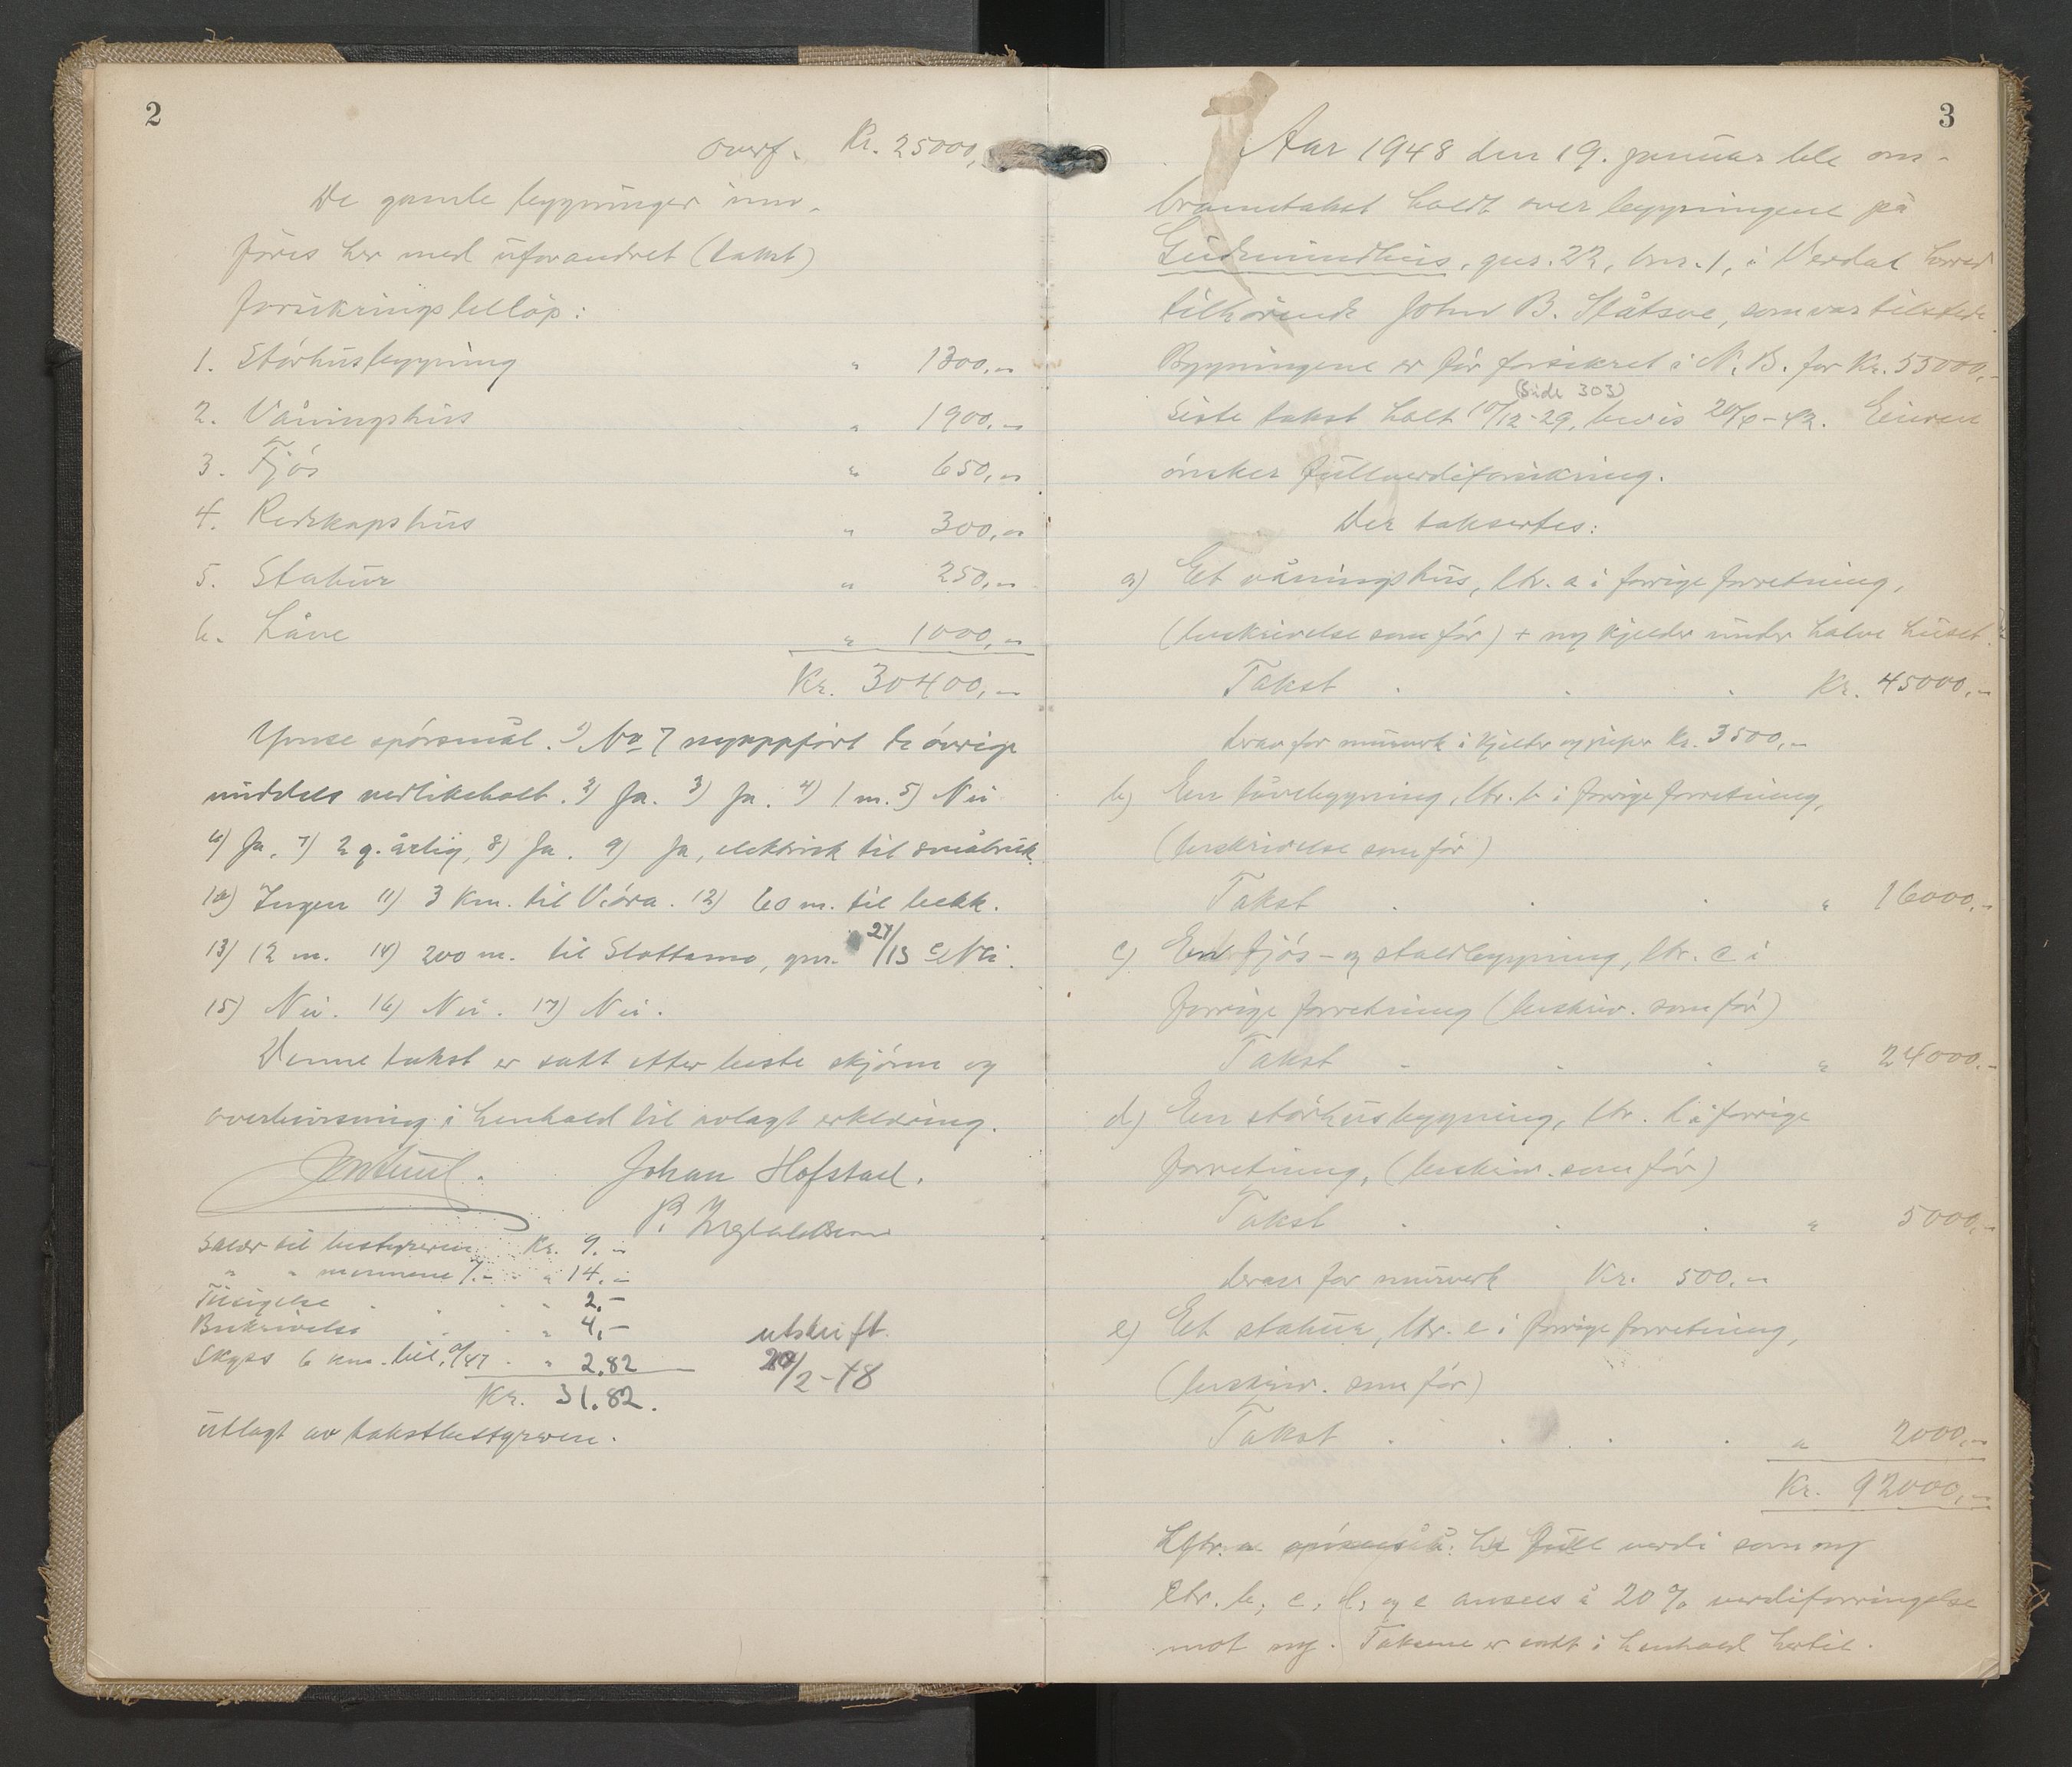 2
overf. Kr. 25000,-
De gamle bygninger inn-
føres her med uforandret (takst)
forsikringsbeløp:
1. Størhusbygning " 1300,-
2. Våningshus " 1900,-
3. Fjøs " 650,-
4. Redskapshus " 300,-
5. Stabur " 250,-
6. Låve " 1000,-
Kr. 30400,-
Ymse spørsmål. 1) No 7 nyoppført de øvrige
middels vedlikeholt. 2) Ja. 3) Ja. 4) 1 m. 5) Nei
6) Ja. 7) 2 g. årlig, 8) Ja. 9) Ja, elektrisk til småbruk.
10) Ingen 11) 3 Km. til Vøra. 12) 60 m. til bekk.
13) 12 m. 14) 200 m. til Slottamo, gnr. 27/13 Nei.
15) Nei. 16) Nei. 17) Nei.
Denne takst er satt etter beste skjønn og
overbevisning i henhold til avlagt erklæring.
Johan Hofstad.
P.
Salær til bestyreren Kr. 9.-
" " mennene 7.- " 14.-
Tilsigelse " 2,-
Beskrivelse " 4,-
Skyss 6 km. til, à /47 " 2.82
Kr. 31.82.
utlagt av takstbestyreren.
utskrift.
20/2-48
3
Aar 1948 den 19. januar ble om-
branntakst holdt over bygningene på
Gudmundhus, gnr. 22, bnr. 1, i Verdal herred
tilhørende John B. Slåtsve, som var tilstede.
Bygningene er før forsikret i N. B. for Kr. 55000,-
(Side 303)
Siste takst holt 10/12-29, bevis 20/6-42. Eieren
ønsker fullverdiforsikring.
Der taksertes:
a) Et våningshus, ltr. a i forrige forretning,
(beskrivelse som før) + ny kjelder under halve huset.
Takst Kr. 45000,-
derav for murverk i kjelder og piper Kr. 3500,-
b) En låvebygning, ltr. b i forrige forretning,
(beskrivelse som før)
Takst " 16000,-
c) En fjøs- og stallbygning, ltr. c i
forrige forretning (beskriv. som før)
Takst " 24000,-
d) En størhusbygning, ltr. d i forrige
forretning, (beskriv. som før)
Takst " 5000,-
derav for murverk Kr. 500,-
e) Et stabur, ltr. e i forrige forretning,
(beskriv. som før)
Takst " 2000,-
Kr. 92000,-
full verdi som ny
Ltr. b, c, d, og e ansees å 20% verdiforringelse
mot ny. Taksene er satt i henhold hertil.